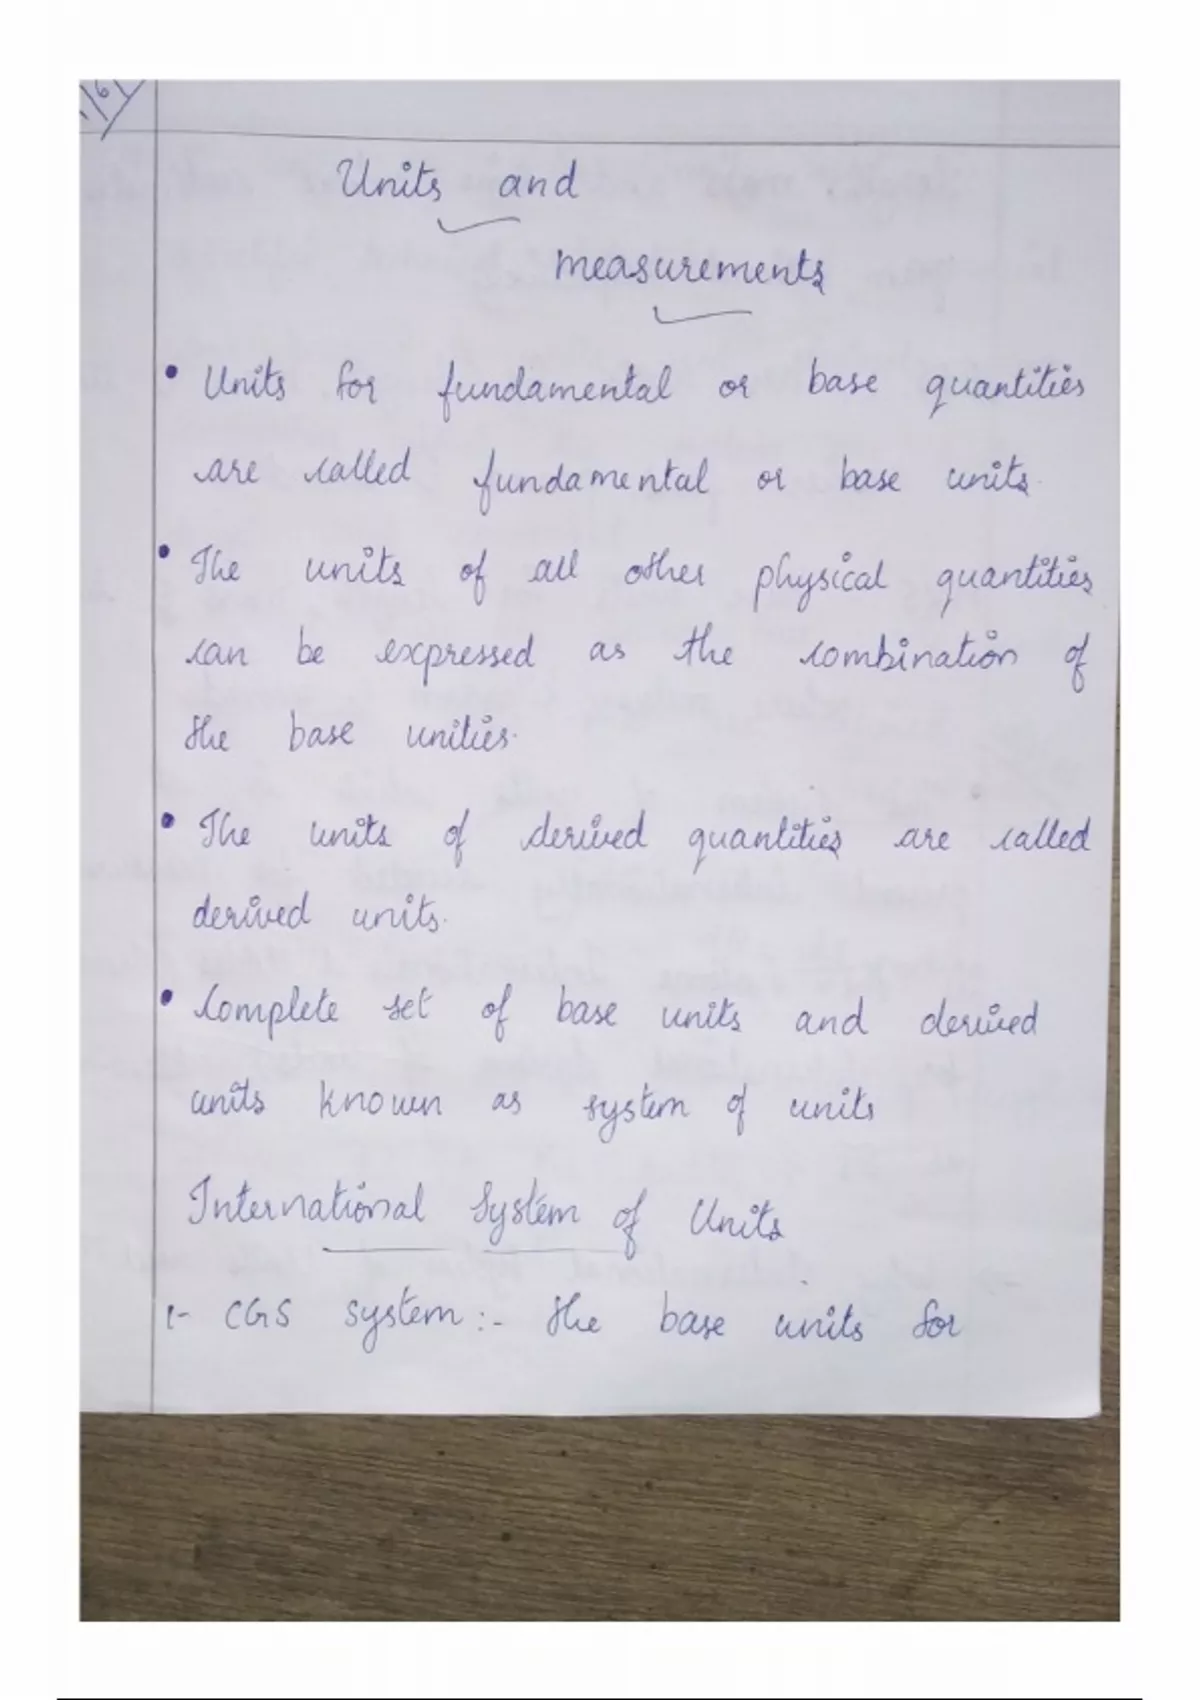 Units and
measurements
• Units for fundamental or base quantities
are called fundamental or base units.
• The units of all other physical quantities
can be expressed as the combination of
the base unities.
• The units of derived quantities are called
derived units.
• Complete set of base units and derived
units known as system of units
International System of Units
1- CGS system :- the base units for